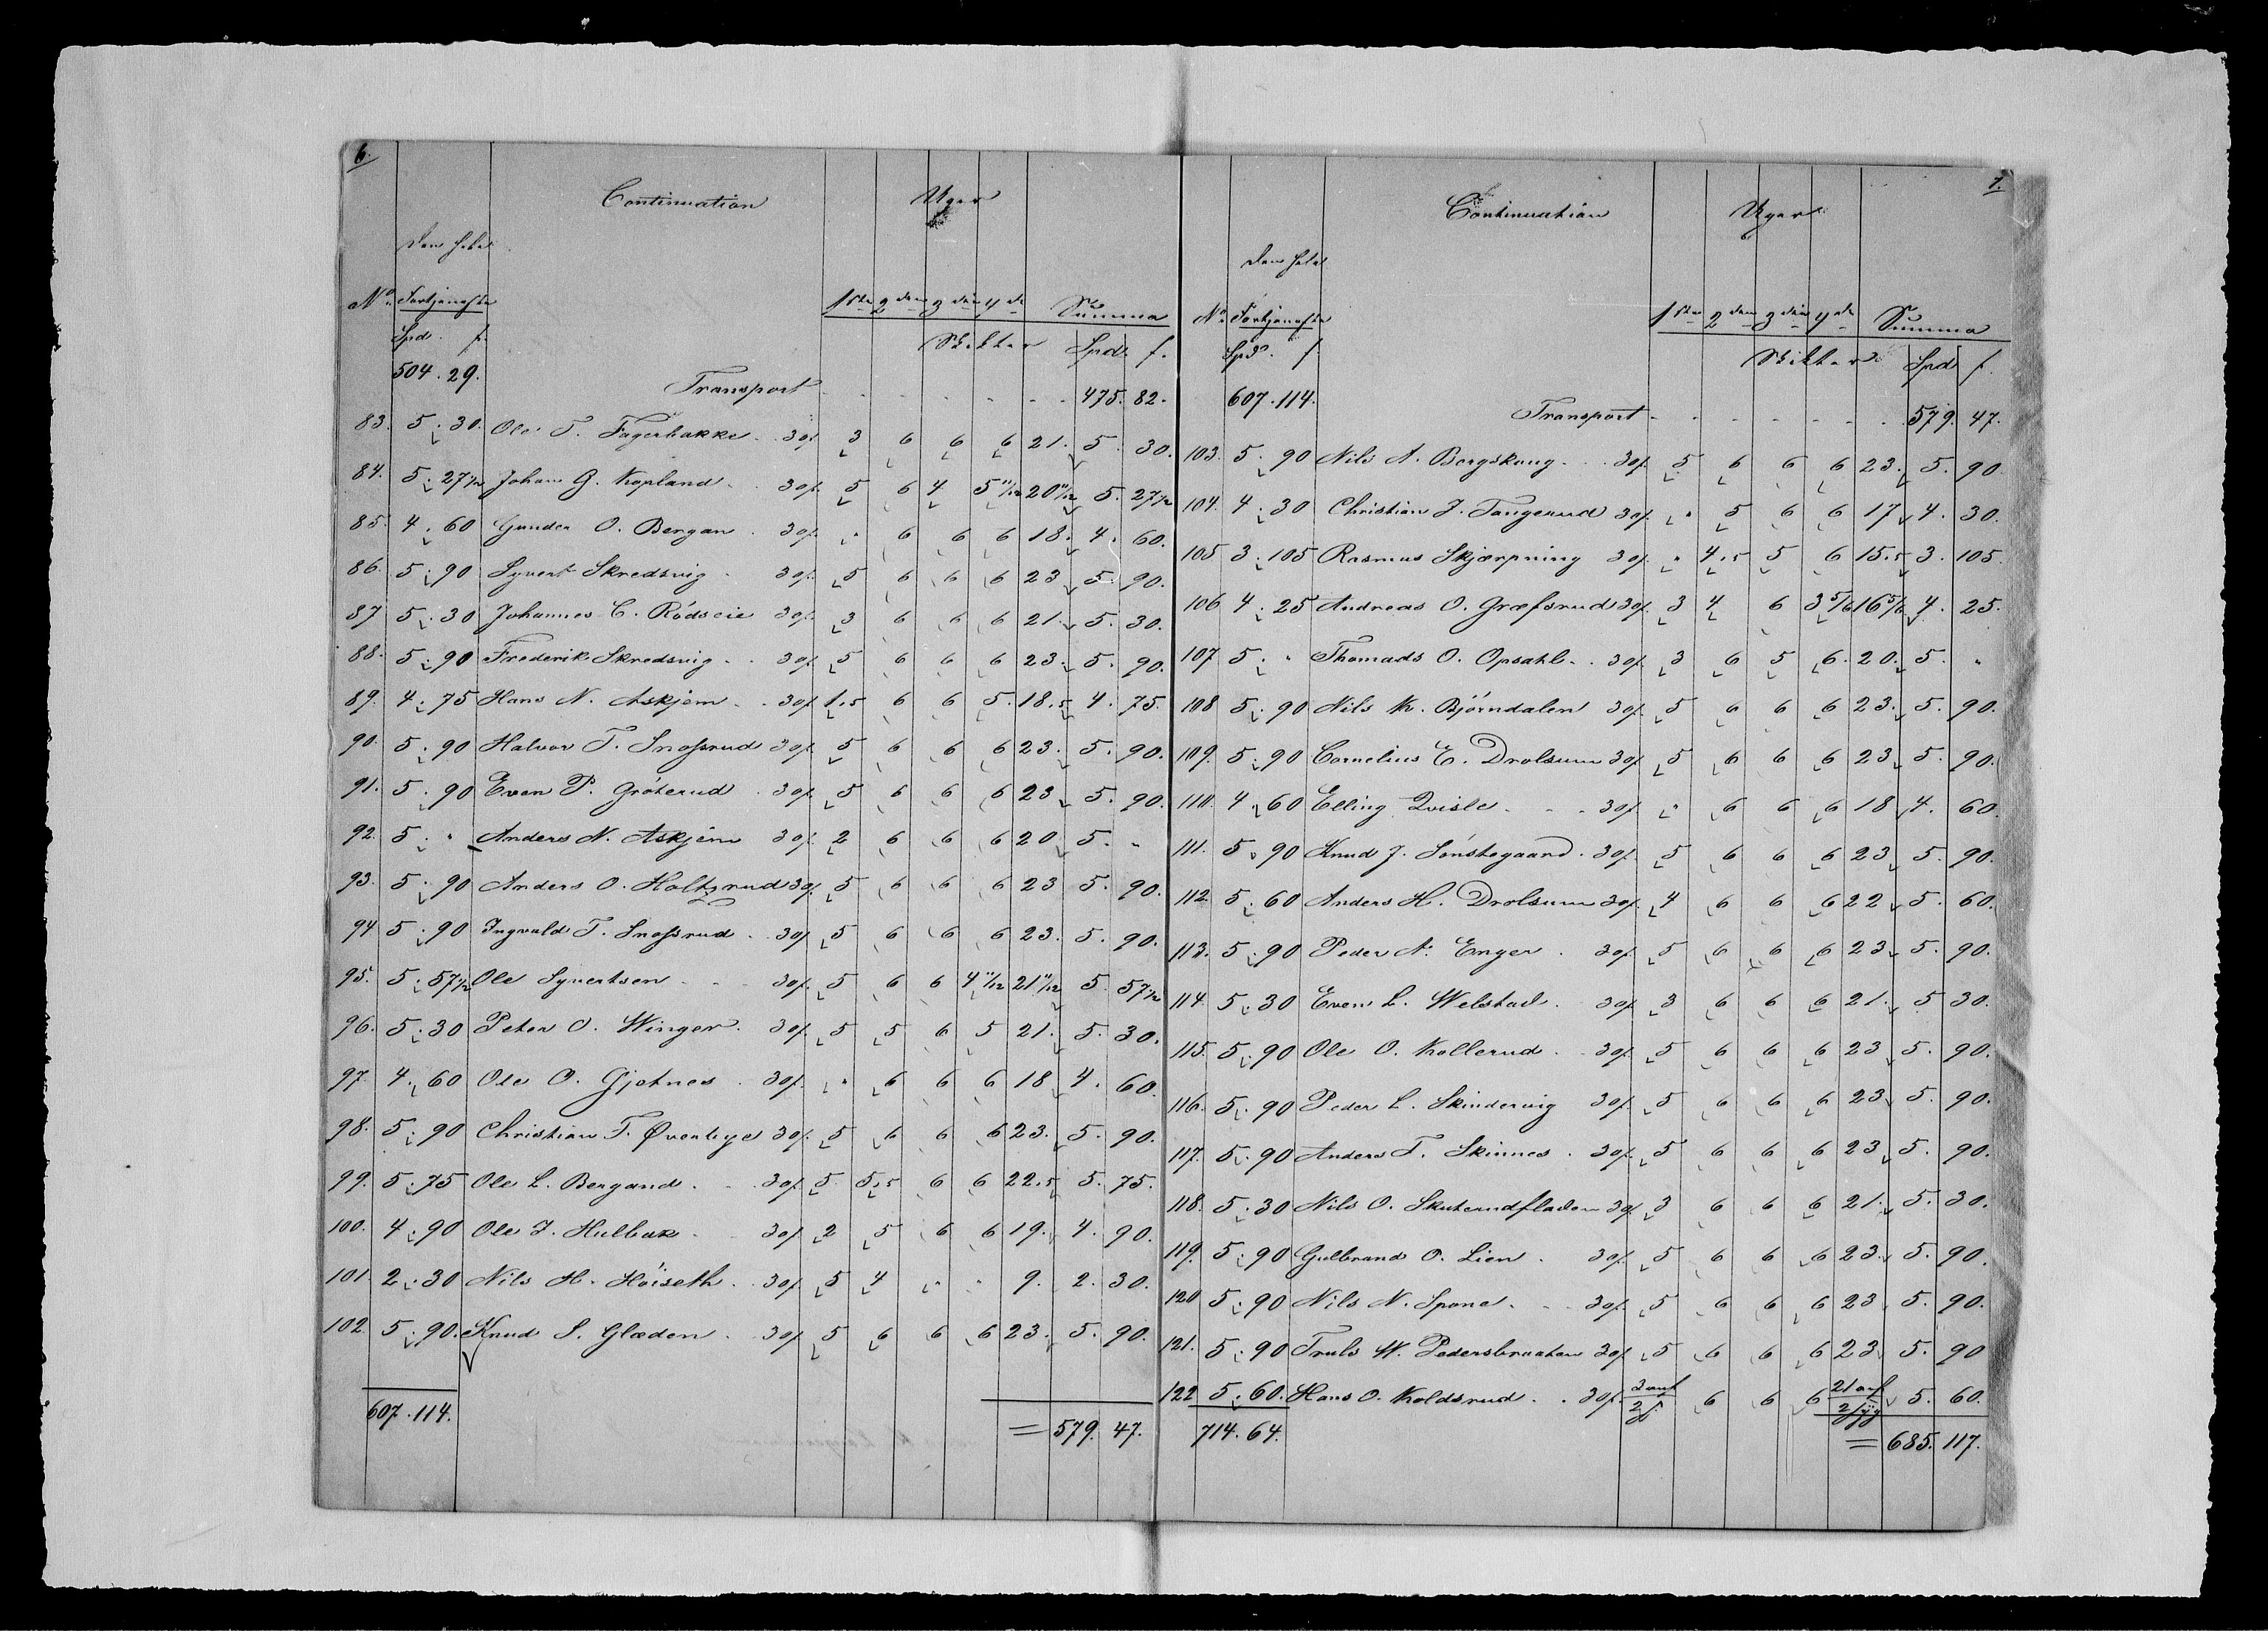 6.
Continuation Uger
den hele
No Fortjeneste 1ste 2den 3die 4de Summa
Spd. ſ. Skikter Spd. ſ.
504. 29. Transport 475. 82.
83. 5. 30. Ole T. Fagerbakke 30ſ. 3 6 6 6 21. 5. 30.
84. 5. 27 1/2 Johan G. Kopland 30ſ. 5 6 4 5 11/12 20 11/12 5. 27 1/2
85. 4. 60 Gunder O. Bergan 30ſ. " 6 6 6 18. 4. 60.
86. 5. 90 Syvert Skredsvig 30ſ. 5 6 6 6 23 5. 90.
87 5. 30 Johannes C. Rödseie 30ſ. 3 6 6 6 21. 5. 30.
88. 5. 90 Frederik Skredsvig 30ſ. 5 6 6 6 23. 5. 90.
89. 4. 75 Hans N. Askjem 30ſ. 1,5 6 6 5. 18,5 4. 75.
90. 5. 90 Halvor T. Snoſsrud 30ſ. 5 6 6 6 23. 5. 90.
91. 5. 90 Even P. Gröterud 30ſ. 5 6 6 6 23 5. 90.
92. 5. " Anders N. Askjem 30ſ. 2 6 6 6 20 5. "
93. 5. 90 Anders O. Holtzrud 30ſ. 5 6 6 6 23 5. 90.
94 5. 90 Ingvald T. Snoſsrud 30ſ. 5 6 6 6 23. 5. 90.
95. 5. 57 1/2 Ole Syvertsen 30ſ. 5 6 6 4 11/12 21 11/12 5 57 1/2
96. 5. 30 Peter O. Winger 30ſ. 5 5 6 5 21. 5. 30.
97. 4. 60 Ole O. Gjetnes 30ſ. " 6 6 6 18 4. 60.
98. 5. 90 Christian T. Øverbye 30ſ. 5 6 6 6 23. 5. 90.
99. 5. 75 Ole L. Bergand 30ſ. 5 5,5 6 6 22,5 5. 75.
100. 4. 90 Ole J. Hulbak 30ſ. 2 5 6 6 19. 4. 90.
101. 2. 30 Nils H. Höiseth 30ſ. 5 4 " " 9. 2. 30.
102. 5. 90. Knud S. Glæden 30ſ. 5 6 6 6 23. 5. 90.
607. 114. = 579. 47.
7.
Continuation Uger
den hele
No Fortjeneste 1ste 2den 3die 4de Summa
Spd. ſ Skikter Spd ſ.
607. 114. Transport 579. 47.
103. 5. 90 Nils A. Bergskaug 30ſ. 5 6 6 6 23. 5. 90.
104. 4. 30 Christian J. Tangerud 30ſ. " 5 6 6 17 4. 30.
105 3. 105 Rasmus Skjærpning 30ſ. " 4,5 5 6 15,5 3. 105.
106 4. 25 Andreas O. Græfsrud 30ſ. 3 4 6 3 5/6 16 5/6 4. 25.
107 5. " Thomads O. Opsahl 30ſ. 3 6 5 6. 20. 5. "
108 5. 90 Nils K. Björndalen 30ſ. 5 6 6 6 23. 5. 90.
109. 5. 90 Cornelius E. Drolsum 30ſ. 5 6 6 6 23 5. 90.
110. 4. 60 Elling Qvisle 30ſ. " 6 6 6 18 4. 60.
111. 5. 90 Knud J. Sönstegaard 30ſ. 5 6 6 6 23 5. 90.
112. 5. 60 Anders H. Drolsum 30ſ. 4 6 6 6 22 5. 60.
113. 5. 90 Peder A. Enger 30ſ. 5 6 6 6 23 5. 90.
114. 5. 30 Even L. Welstad 30ſ. 3 6 6 6 21. 5 30.
115. 5. 90 Ole O. Kollerud 30ſ. 5 6 6 6 23 5. 90.
116. 5. 90 Peder L. Skindervig 30ſ. 5 6 6 6 23 5. 90.
117. 5. 90 Anders T. Skinnes 30ſ. 5 6 6 6 23 5. 90.
118. 5. 30 Nils O. Skuterudfladen 30ſ. 3 6 6 6 21. 5. 30.
119. 5. 90 Gulbrand O. Lien 30ſ. 5 6 6 6 23. 5. 90.
120 5. 90 Nils N. Spone 30ſ. 5 6 6 6 23 5. 90.
121. 5. 90 Truls W. Pedersbraaten 30ſ. 5 6 6 6 23 5. 90
122 5. 60. Hans O. Koldsrud 30ſ. 6 6 6 5. 60.
714. 64. = 685. 117.